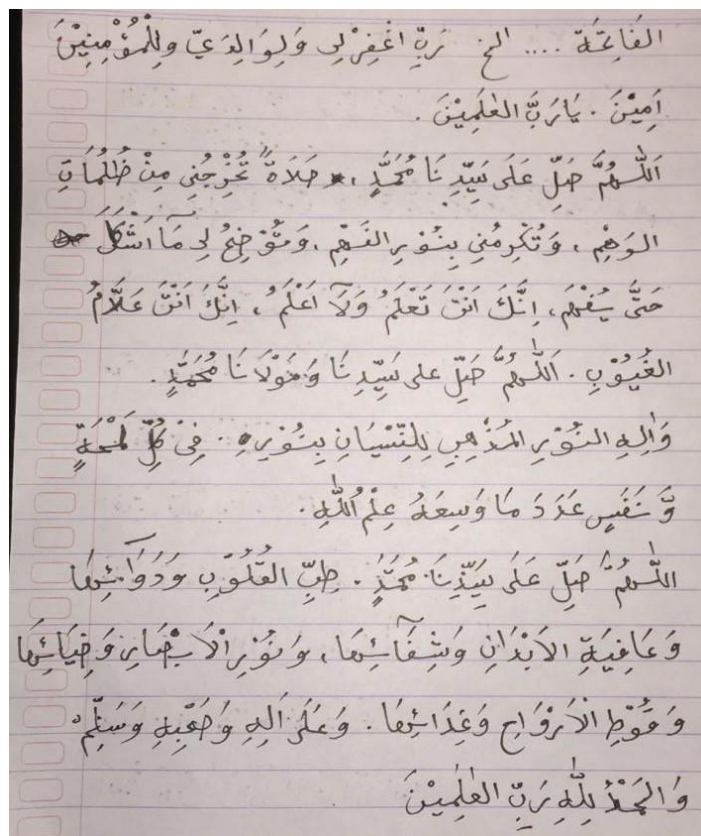 الفَاتِحَة .... الخ رَبِّ اغْفِرْلِى وَلِوَالِدَيَّ وَلِلْمُؤْمِنِيْنَ
اَمِيْنَ . يَارَبَّ العٰلَمِيْنَ .
اَللّٰهُمَّ صَلِّ عَلَى سَيِّدِنَا مُحَمَّدٍ ، صَلَاةً تُخْرِجُنِى مِنْ ظُلُمَاتِ
الوَهْمِ ، وَتُكْرِمُنِى بِنُوْرِ الفَهْمِ ، وَتُوْضِحُ لِى مَا اَشْكَلَ
حَتَّى يُفْهَمَ ، اِنَّكَ اَنْتَ تَعْلَمُ وَلَآ اَعْلَمُ ، اِنَّكَ اَنْتَ عَلَّامُ
الغُيُوْبِ . اَللّٰهُمَّ صَلِّ على سَيِّدِنَا وَمَوْلَانَا مُحَمَّدٍ .
وَاٰلِهِ النُوْرِ المُذْهِبِ لِلنِّسْيَانِ بِنُوْرِهِ . فِىْ كُلِّ لَمْحَةٍ
وَّنَفَسٍ عَدَدَ مَا وَسِعَهُ عِلْمُ اللّٰهِ .
اللّٰهُمَّ صَلِّ عَلَى سَيِّدِنَا مُحَمَّدٍ . طِبِّ القُلُوْبِ وَدَوَآئِهَا
وَعَافِيَةِ الاَبْدَانِ وَشِفَآئِهَا ، وَنُوْرِ الْاَبْصَارِ وَضِيَائِهَا
وَقُوْطِ الْاَرْوَاحِ وَغِذَائِهَا . وَعَلَى اَلِهِ وَصَحْبِهِ وَسَلِّمْ
وَالحَمْدُ لِلّٰهِ رَبِّ العٰلَمِيْنَ